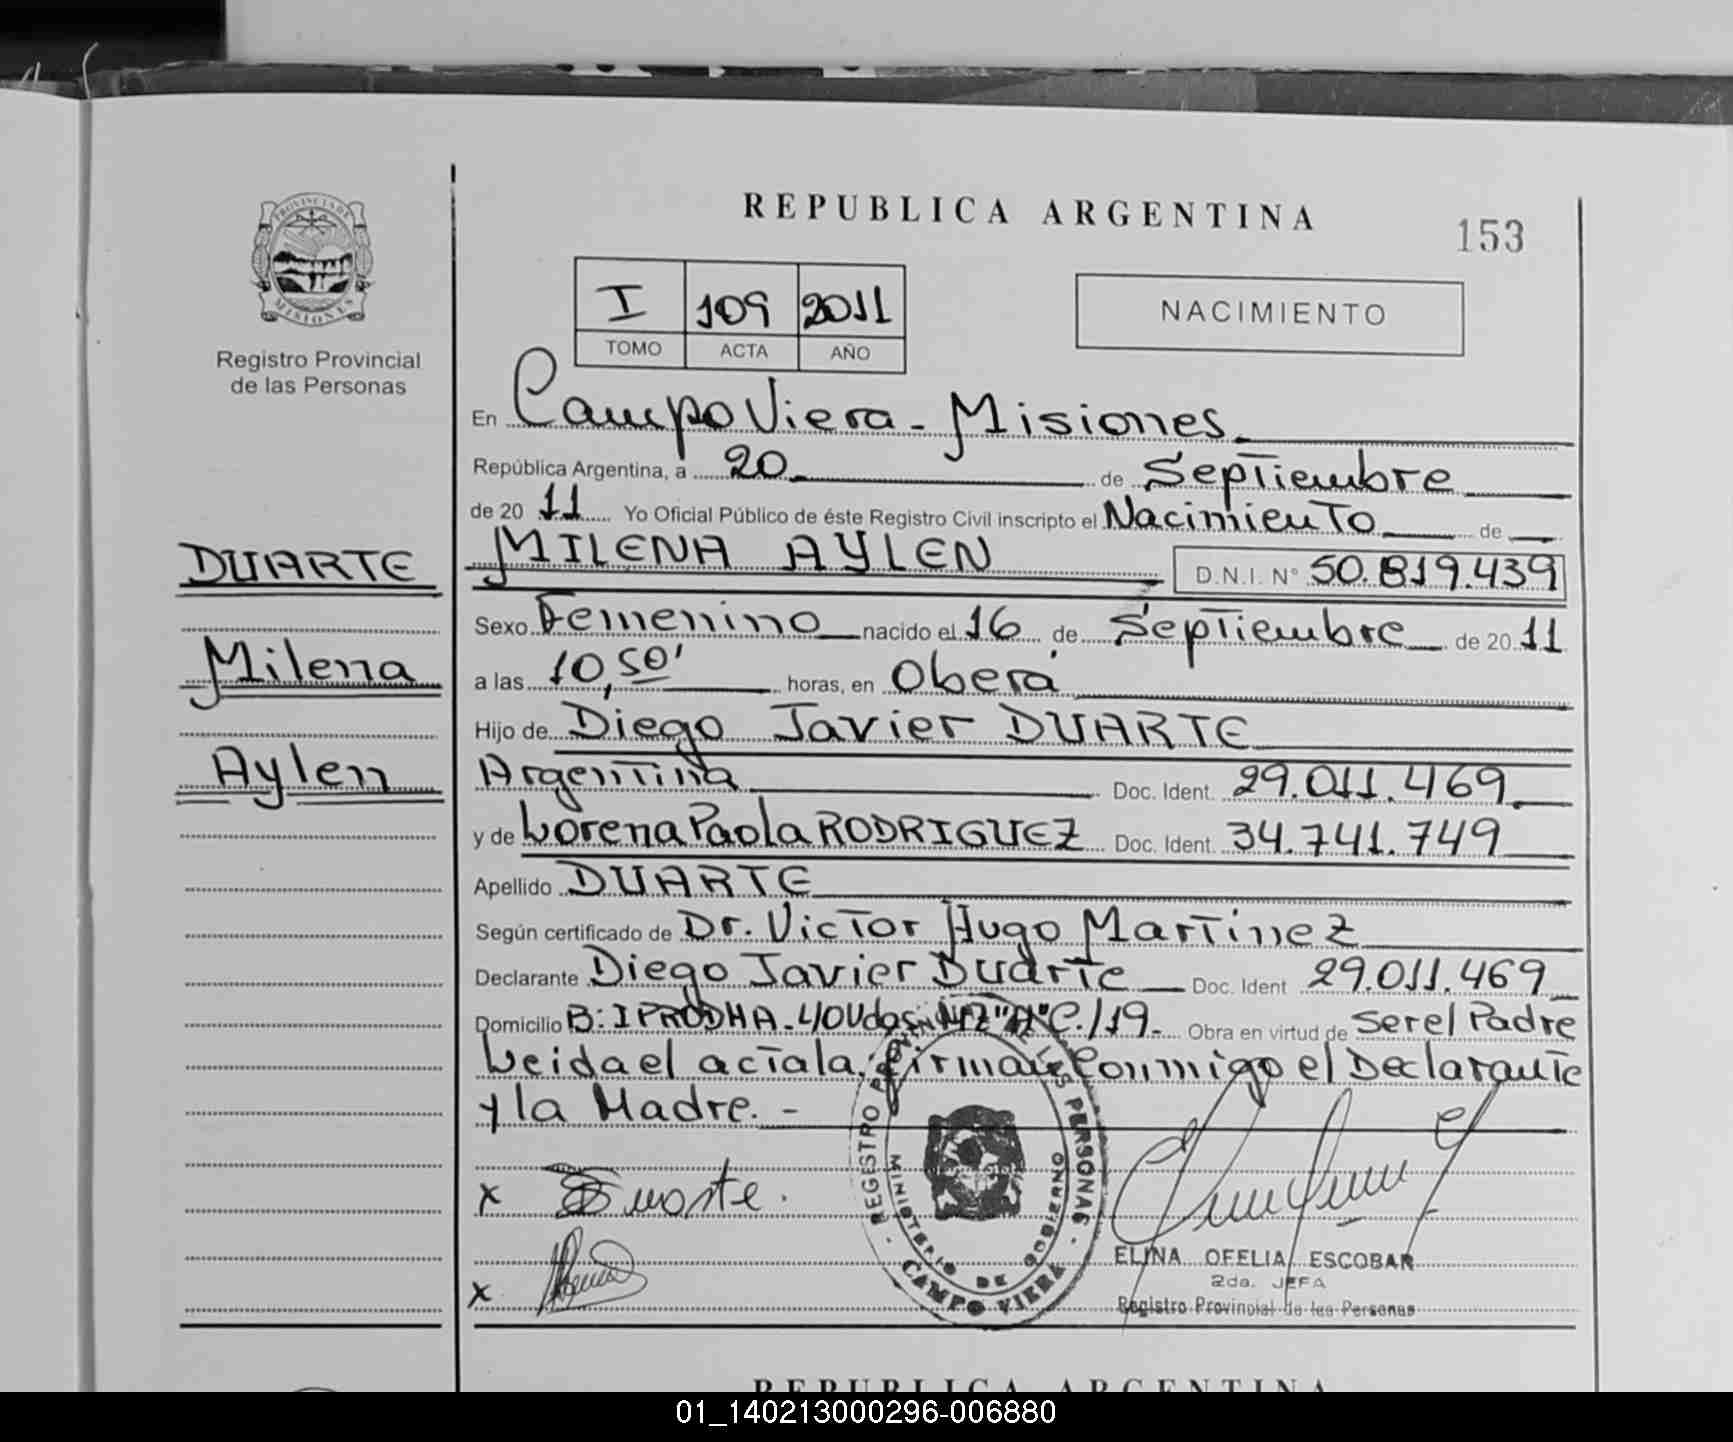 REPUBLICA ARGENTINA
153
PROVINCIA DE
MISIONES
Registro Provincial
de las Personas
I 109 2011
TOMO ACTA AÑO
NACIMIENTO
En Campo Viera - Misiones
República Argentina, a 20 de Septiembre
de 20 11 Yo Oficial Público de éste Registro Civil inscripto el Nacimiento de
DUARTE
MILENA AYLEN D.N.I. Nº 50.819.439
Sexo Femenino nacido el 16 de Septiembre de 20 11
Milena
a las 10,50' horas, en Oberá
Hijo de Diego Javier DUARTE
Aylen
Argentina Doc. Ident. 29.011.469
y de Lorena Paola RODRIGUEZ Doc. Ident. 34.741.749
Apellido DUARTE
Según certificado de Dr. Victor Hugo Martinez
Declarante Diego Javier Duarte Doc. Ident 29.011.469
Domicilio B: IPRODHA - 40 Vdas. Mz "A" C./19. Obra en virtud de Ser el Padre
Leida el acta la firman Conmigo el Declarante
y la Madre. -
x Duarte.
x
REGISTRO PROVINCIAL DE LAS PERSONAS
MINISTERIO DE GOBIERNO
CAMPO VIERA
ELINA OFELIA ESCOBAR
2da. JEFA
Registro Provincial de las Personas
REPUBLICA ARGENTINA
01_140213000296-006880